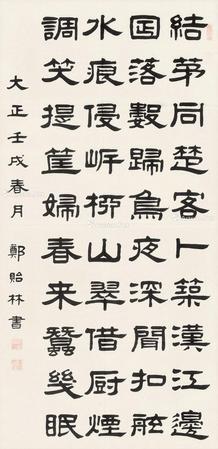 結茅同楚客卜築漢江邊
囸落數歸鳥夜深聞扣舷
水痕侵岸柳山翠借厨煙
調笑提筐婦春来蠶幾眠
大正壬戌春月 鄭貽林書